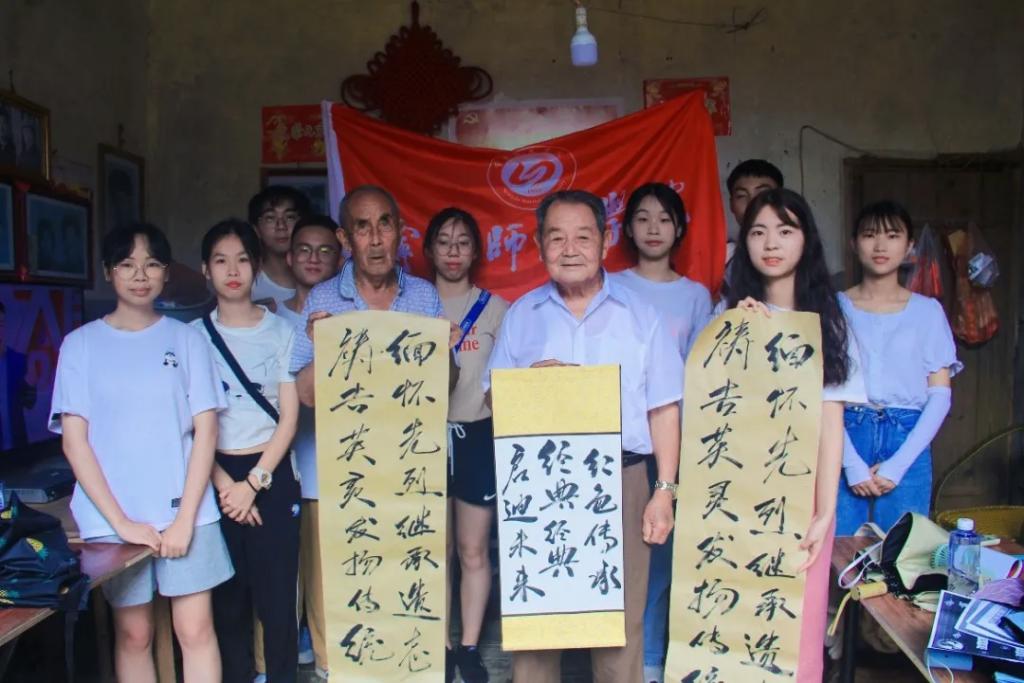 师
缅怀先烈继承遗志
祷告英灵发扬传统
红色传承
经典经典
启迪未来
缅怀先烈继承遗
祷告英灵发扬传